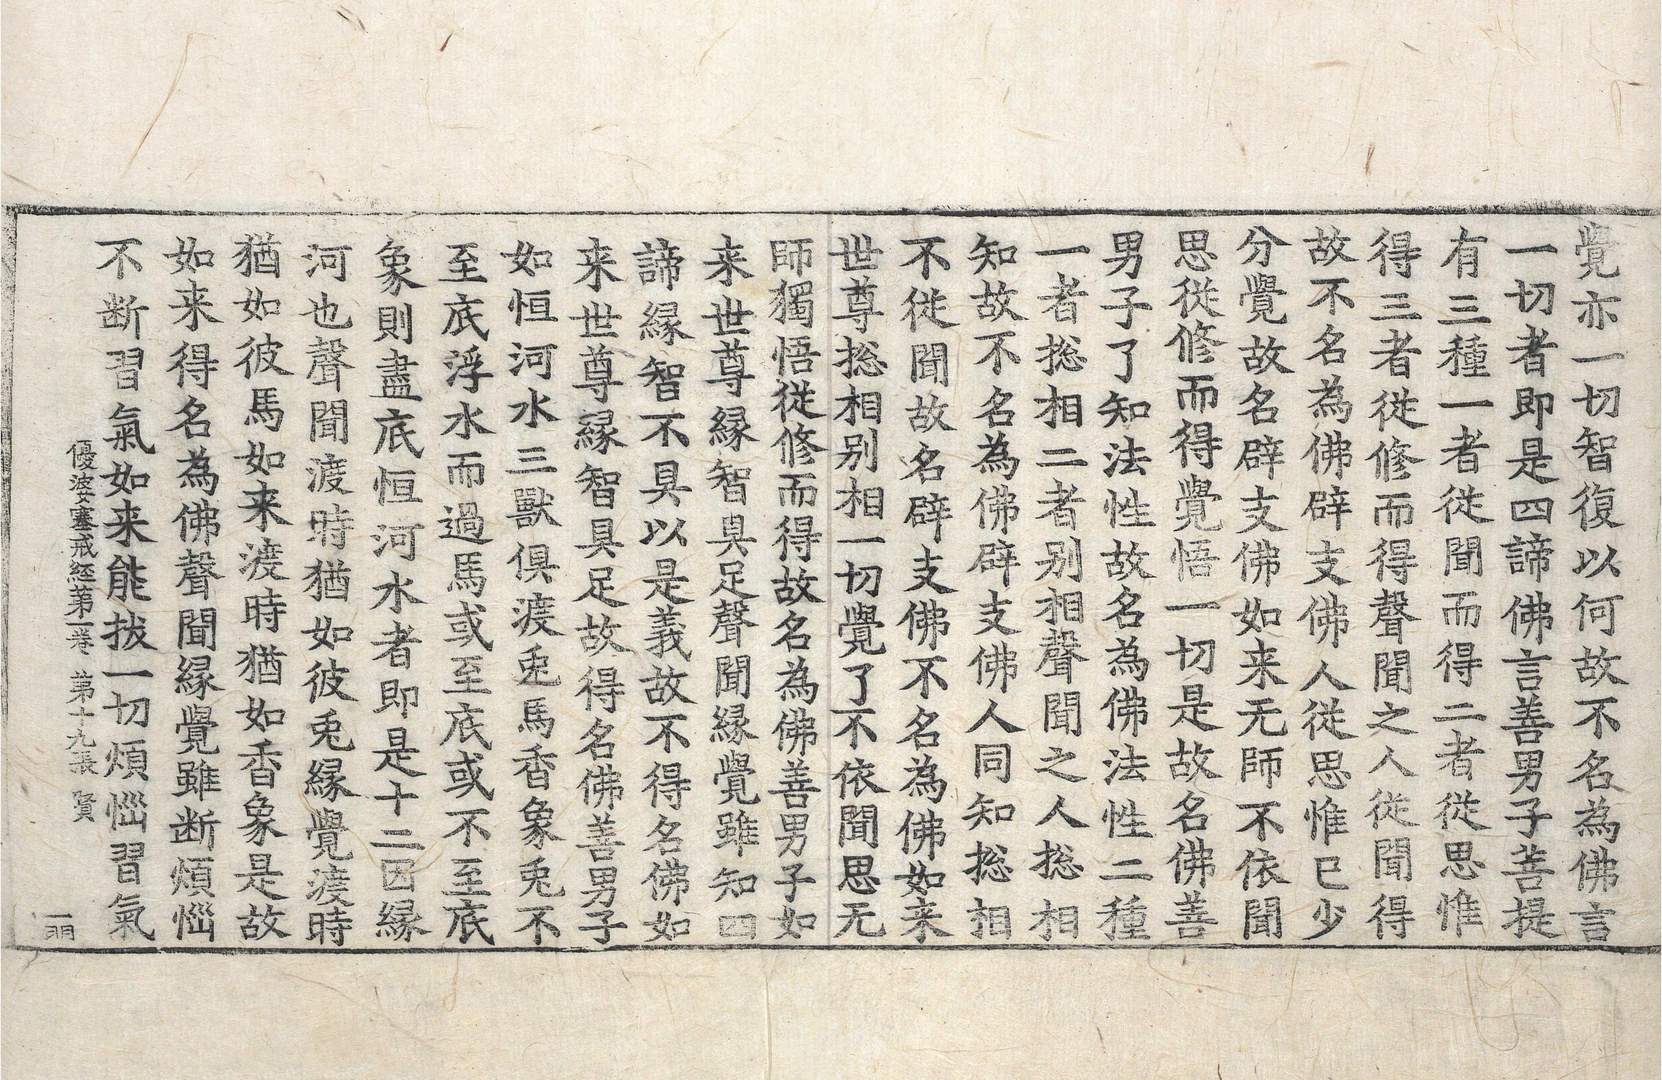 覺亦一切智復以何故不名為佛言
一切者即是四諦佛言善男子菩提
有三種一者從聞而得二者從思惟
得三者從修而得聲聞之人從聞得
故不名為佛辟支佛人從思惟已少
分覺故名辟支佛如来无師不依聞
思從修而得覺悟一切是故名佛善
男子了知法性故名為佛法性二種
一者捴相二者别相聲聞之人捴相
知故不名為佛辟支佛人同知捴相
不從聞故名辟支佛不名為佛如来
世尊捴相别相一切覺了不依聞思无
師獨悟從修而得故名為佛善男子如
来世尊縁智具足聲聞縁覺雖知四
諦縁智不具以是義故不得名佛如
来世尊縁智具足故得名佛善男子
如恒河水三獸俱渡兎馬香象兎不
至底浮水而過馬或至底或不至底
象則盡底恒河水者即是十二因縁
河也聲聞渡時猶如彼兎縁覺渡時
猶如彼馬如来渡時猶如香象是故
如来得名為佛聲聞縁覺雖断煩惱
不断習氣如来能拔一切煩惱習氣
優波塞戒経第一卷 第十九張 賢